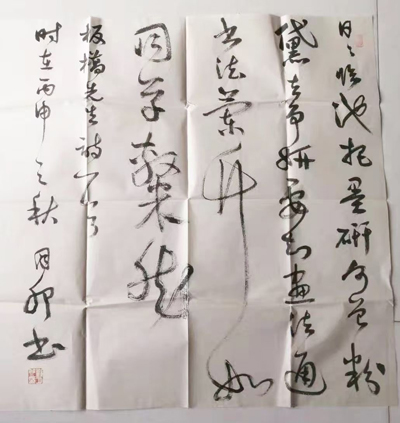 日々临池把墨研何曾粉
黛去争妍要知畫法通
书法兰竹如
同草隸然
板橋先生诗一首
时在丙申之秋 书